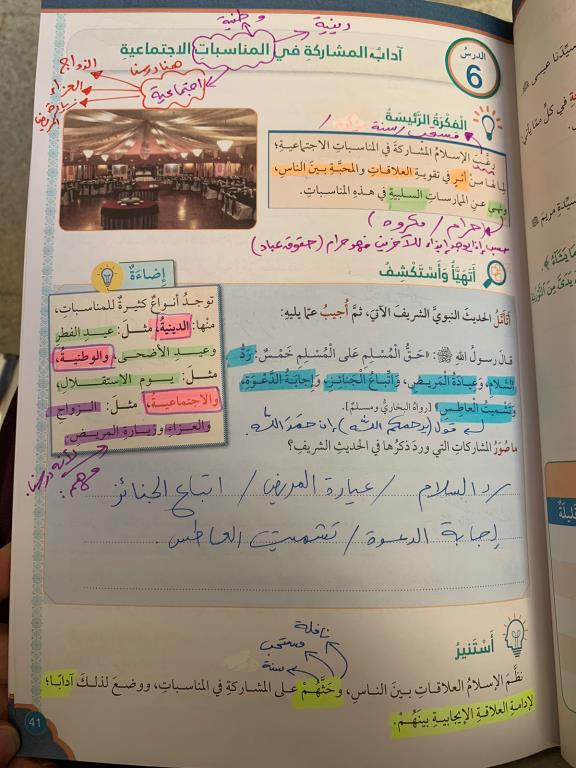 دينية
وطنية
الدرسُ
6
آدابُ المشاركةِ في المناسباتِ الاجتماعيةِ
هنا درسنا
الزواج
العزاء
زيارة المريض
اجتماعية
الفكرةُ الرَّئيسةُ
مستحب / سنة /
رغّبَ الإسلامُ المشاركةَ في المناسباتِ الاجتماعيةِ؛
لِما لها من أثرٍ في تقويةِ العلاقاتِ والمحبّةِ بينَ الناسِ،
ونهى عنِ الممارساتِ السلبيةِ في هذهِ المناسباتِ.
حرام / مكروه
حسب إذا يوجد إيذاء للآخرين فهو حرام (حقوق عباد)
أتهيَّأُ وَأَسْتَكْشِفُ
أتأمّلُ الحديثَ النبويَّ الشريفَ الآتيَ، ثمَّ أُجيبُ عمّا يليهِ:
قالَ رسولُ اللهِ ﷺ: «حَقُّ الْمُسْلِمِ عَلى الْمُسْلِمِ خَمْسٌ: رَدُّ
السَّلامِ، وَعِيادَةُ الْمَريضِ، وَاتِّباعُ الْجَنائِزِ، وَإِجابَةُ الدَّعْوَةِ،
وَتَشْميتُ الْعاطِسِ» [رواهُ البخاريُّ ومسلمٌ].
قول (يرحمكم الله) بأن حمد الله
ما صُوَرُ المشاركاتِ التي وردَ ذكرُها في الحديثِ الشريفِ؟
رد السلام / عيادة المريض / اتباع الجنائز
إجابة الدعوة / تشميت العاطس
إضاءةٌ
توجدُ أنواعٌ كثيرةٌ للمناسباتِ،
منْها: الدينيةُ، مثلَ: عيدِ الفطرِ
وعيدِ الأضحى، والوطنيةُ،
مثلَ: يومِ الاستقلالِ،
والاجتماعيةُ، مثلَ: الزواجِ
والعزاءِ وزيارةِ المريضِ.
مهم:
أَسْتَنيرُ
نافلة
مستحب
سنة
نظَّمَ الإسلامُ العلاقاتِ بينَ الناسِ، وَحَثَّهُمْ على المشاركةِ في المناسباتِ، ووضعَ لذلكَ آدابًا؛
لإدامةِ العلاقةِ الإيجابيةِ بينَهُمْ.
41